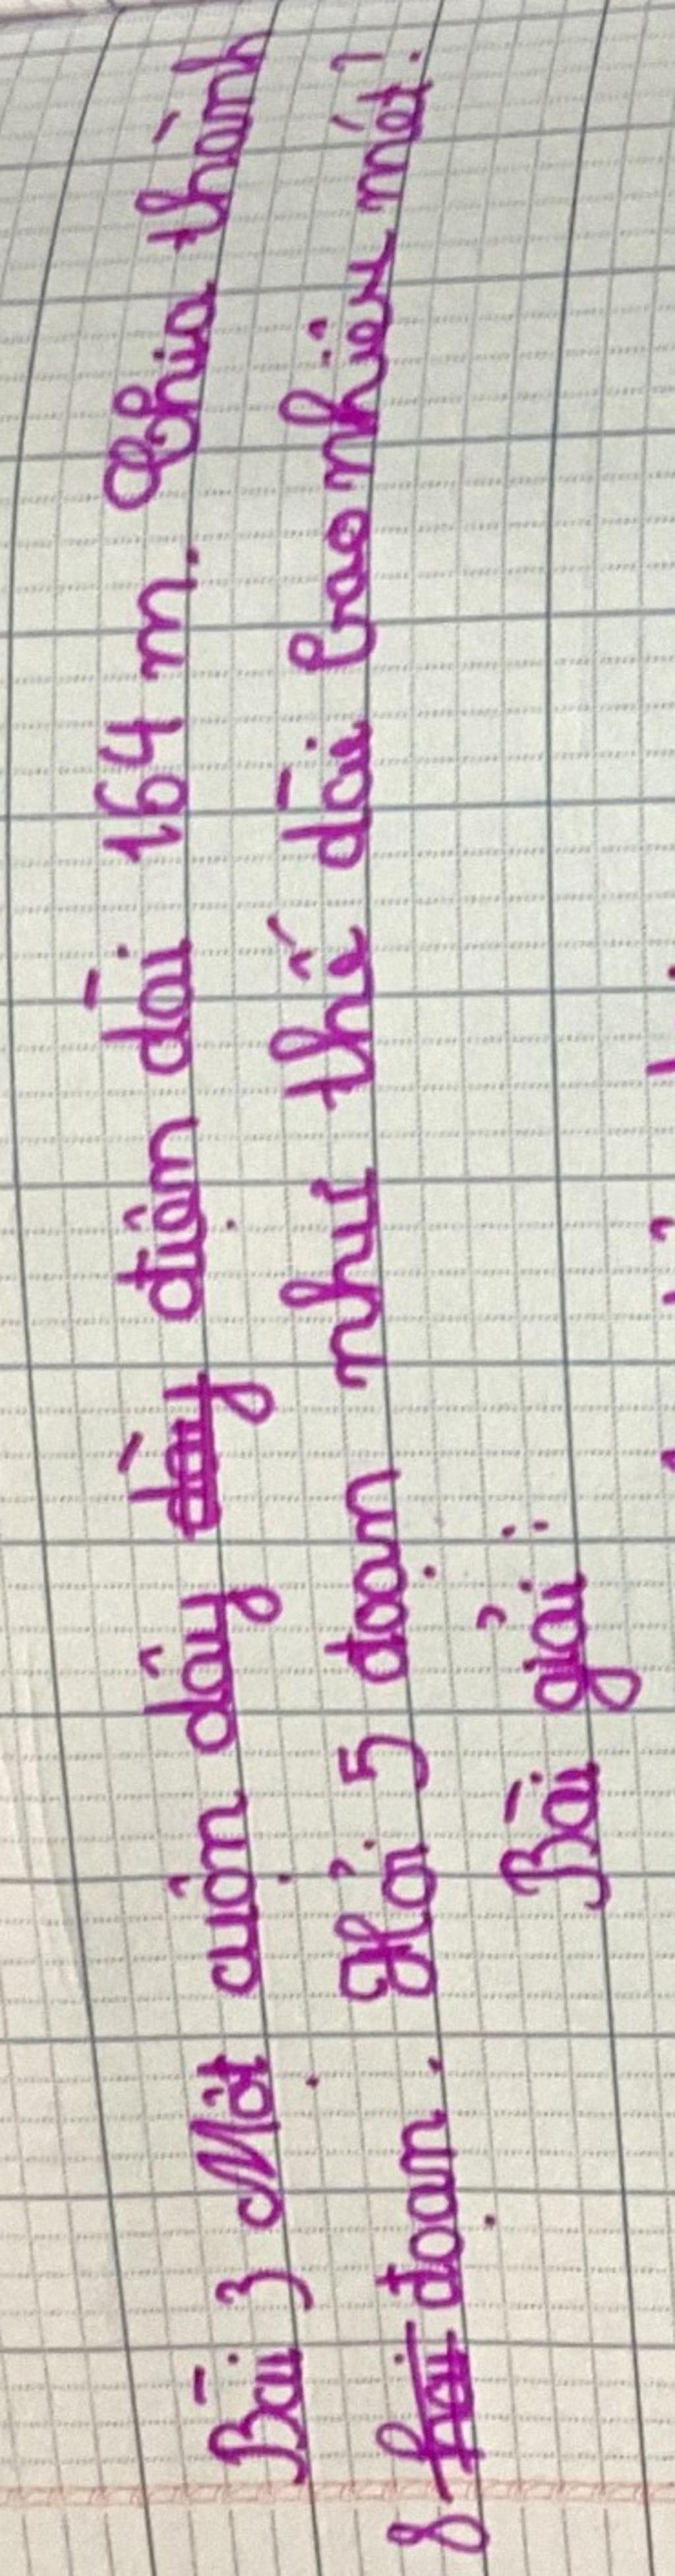 Bài 3 Một cuộn dây dây điện dài 164 m. Chia thành
8 hai đoạn. Hỏi 5 đoạn như thế dài bao nhiêu mét?
Bài giải: